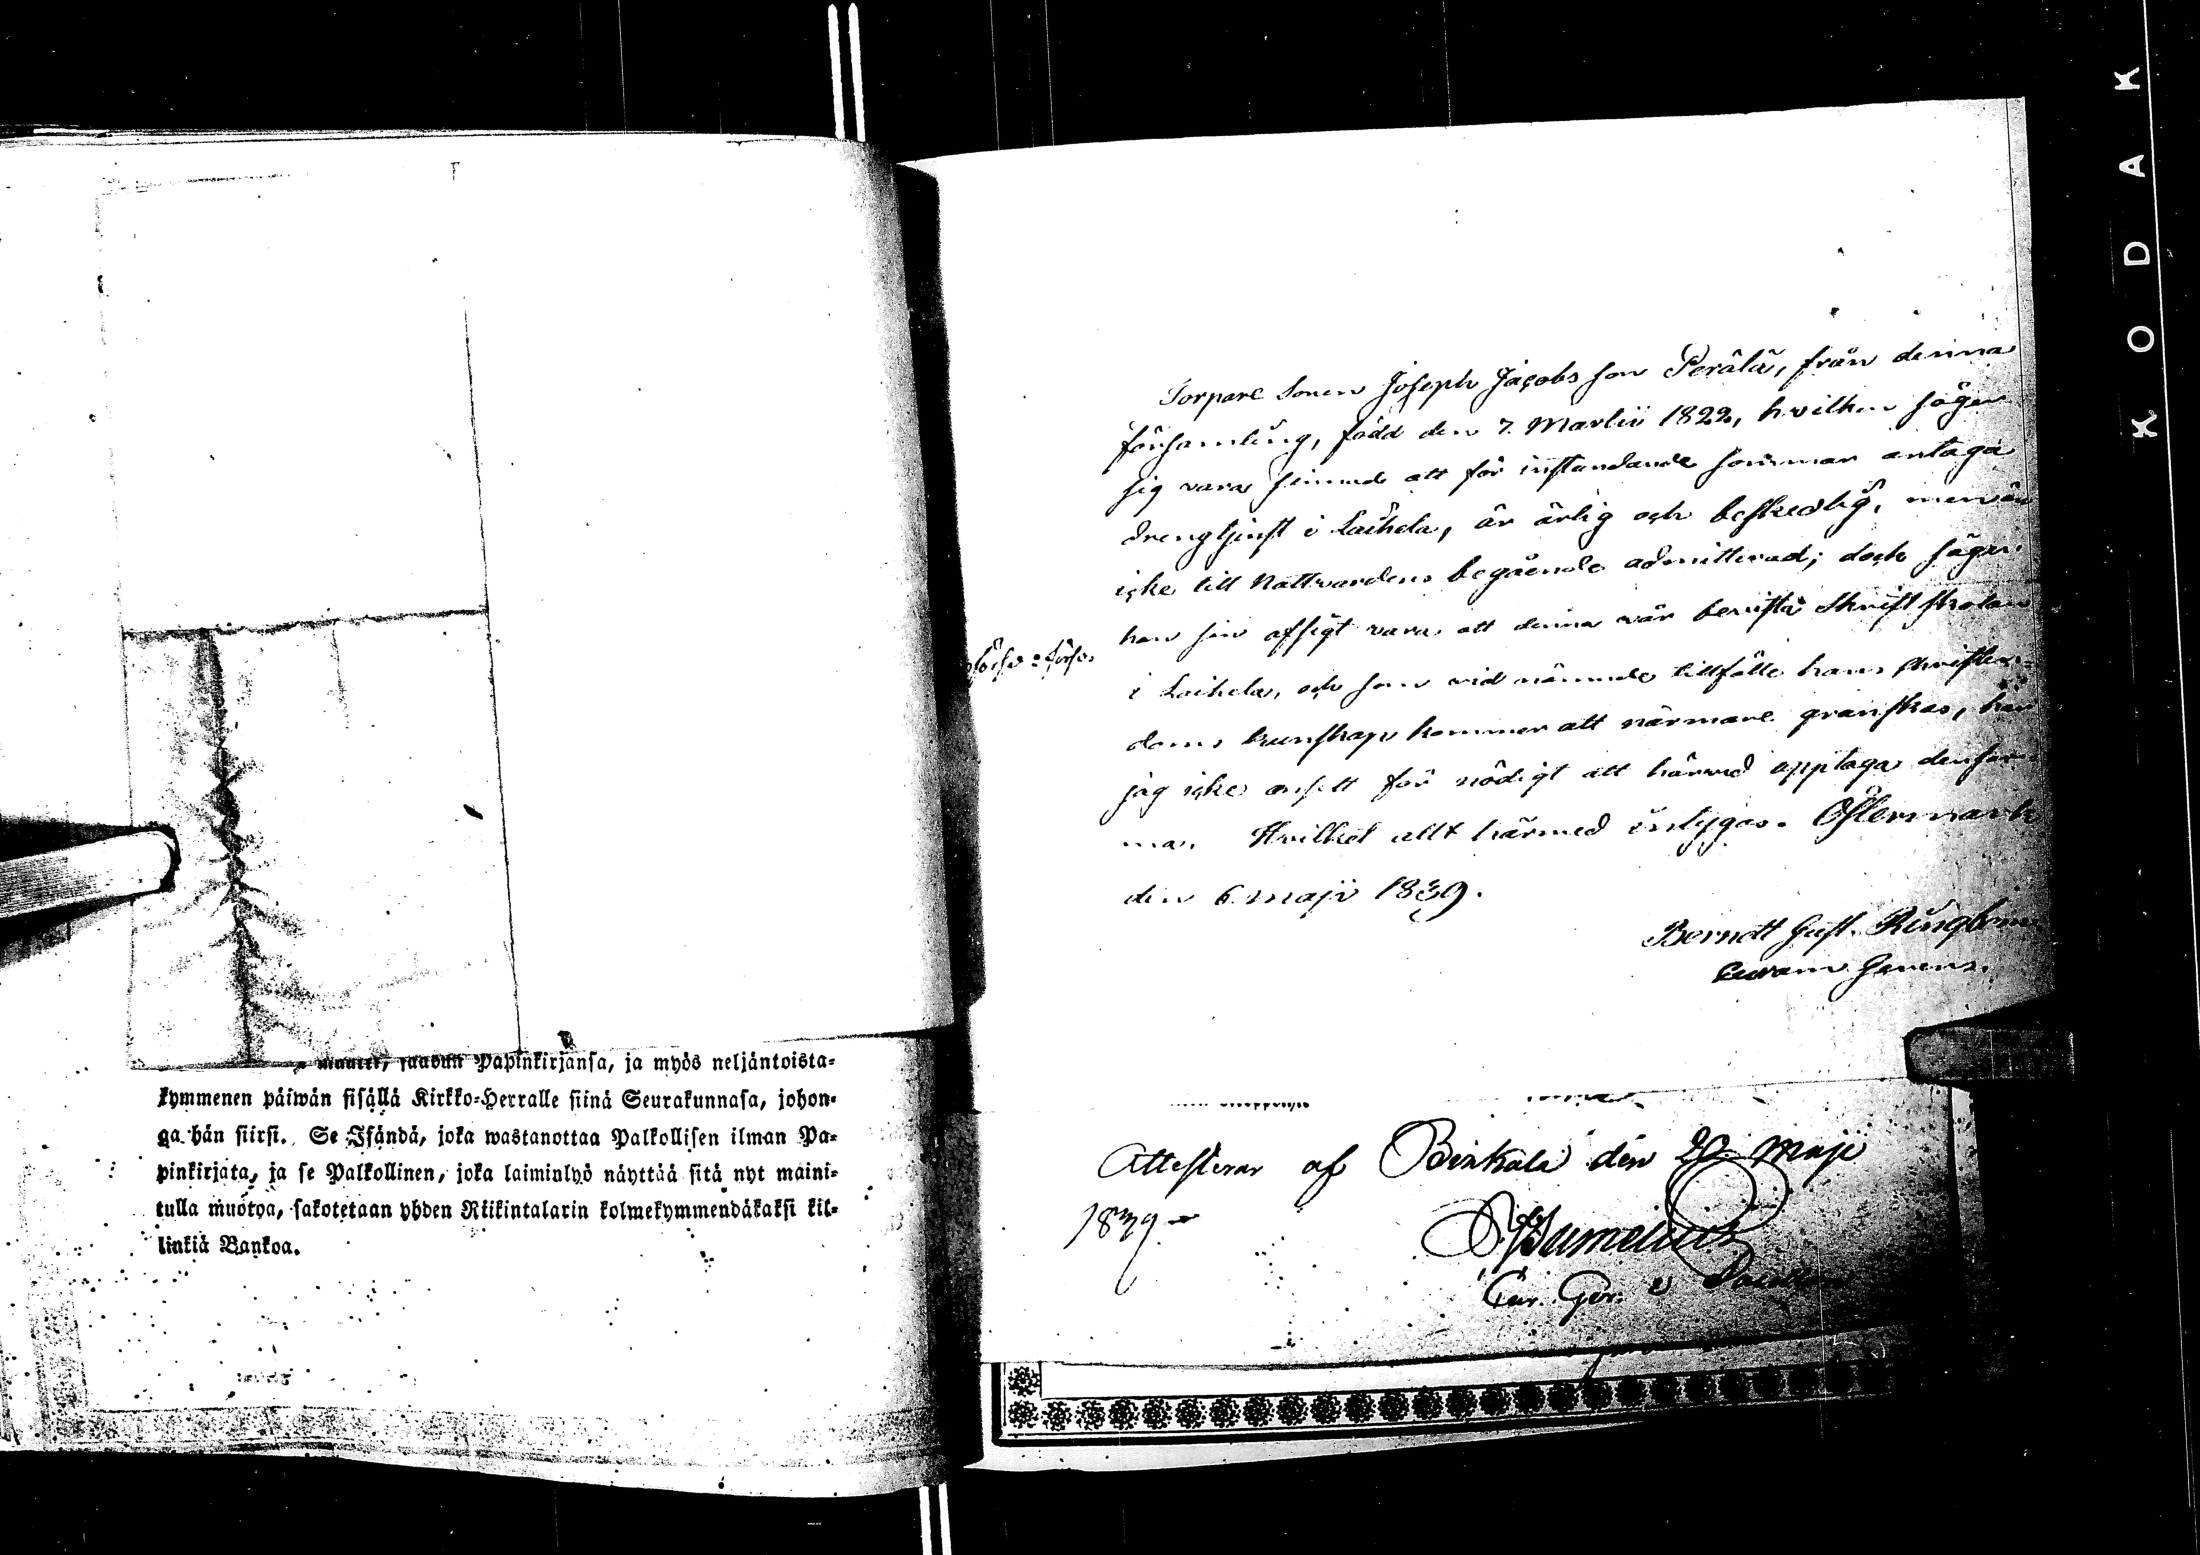 Papinkirjansa, ja myös neljäntoista-
kymmenen päiwän sisällä Kirkko-Herralle siinä Seurakunnasa, johon-
ga hän siirsi. Se Isändä, joka wastanottaa Palkollisen ilman Pa-
pinkirjata, ja se Palkollinen, joka laiminlyö näyttää sitä nyt maini-
tulla muotoa, sakotetaan yhden Riikintalarin kolmekymmendäkaksi kil-
linkiä Bankoa.
Torpare Sonen Joseph Jacobs son Perälä, från denna
församling, född den 7. Martii 1822, hvilken säger
sig vara sinnad att för instundande sommar antaga
drengtjenst i Laihela, är ärlig och beskedlig, men än
icke till Nattvardens begående admitterad; dock säger
han sin afsigt vara att denna vår bevista Skriftskolan
i Laihela, och som vid nämnde tillfälle hans christen-
doms kunskap kommer att närmare granskas, har
jag icke ansett för nödigt att härvid upptaga densam-
ma. Hvilket allt härmed intygas. Östermark
den 6 maji 1839.
Berndt Gust. Ringbom
Curam Gerens.
Attesterar af den 20 Maji
1839
Cur. Ger.
KODAK